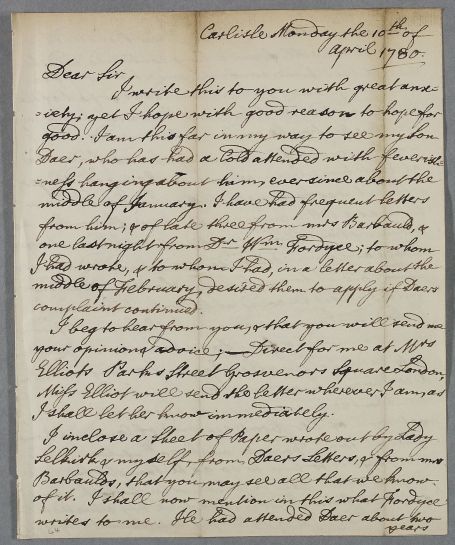 Carlisle Monday the 10th of
April 1780.
Dear Sir
I write this to you with great anx=
=iety; yet I hope with good reason to hope for
good. I am this far in my way to see my Son
Daer, who has had a Cold attended with feverish=
=ness hanging about him, ever since about the
middle of January. I have had frequent letters
from him; & of late three from Mrs Barbauld, &
one last night from Dr Wm Fordyce; to whom
I had wrote, & to whom I had, in a letter about the
middle of February, desired them to apply if Daers
complaint continued.
I beg to hear from you, & that you will send me
your opinion & advice; — Direct for me at Mrs
Elliots Park Street Grosvenors Square London,
Miss Elliot will send the letter wherever I am, as
I shall let her know immediately.
I inclose a Sheet of Paper wrote out by Lady
Selkirk & myself, from Daers Letters, & from Mrs
Barbaulds, that you may see all that we know
of it. I shall now mention in this what Fordyce
writes to me. He had attended Daer about two
years